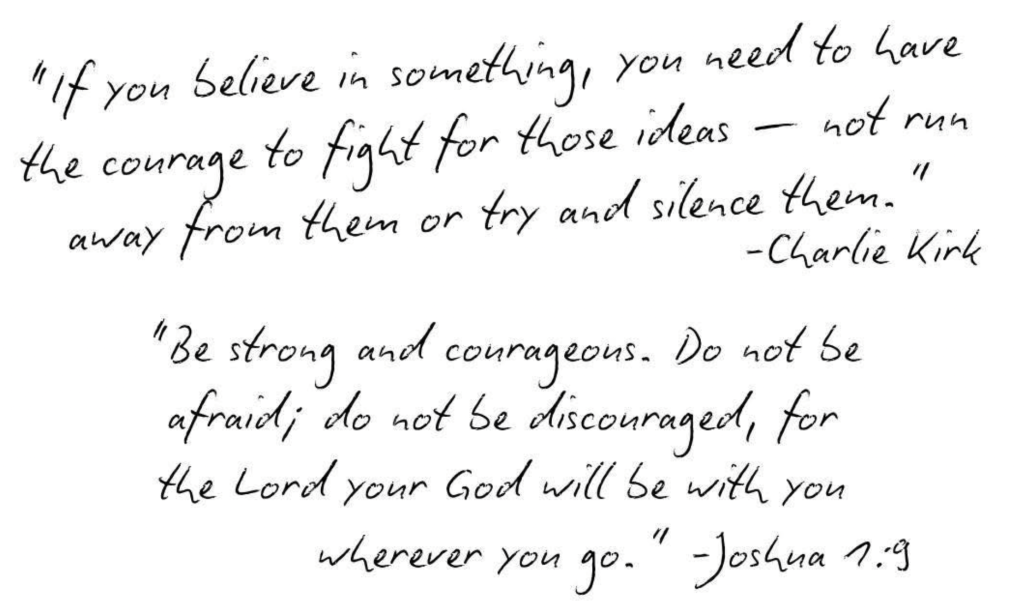 "If you believe in something, you need to have
the courage to fight for those ideas — not run
away from them or try and silence them."
-Charlie Kirk
"Be strong and courageous. Do not be
afraid; do not be discouraged, for
the Lord your God will be with you
wherever you go." -Joshua 1:9